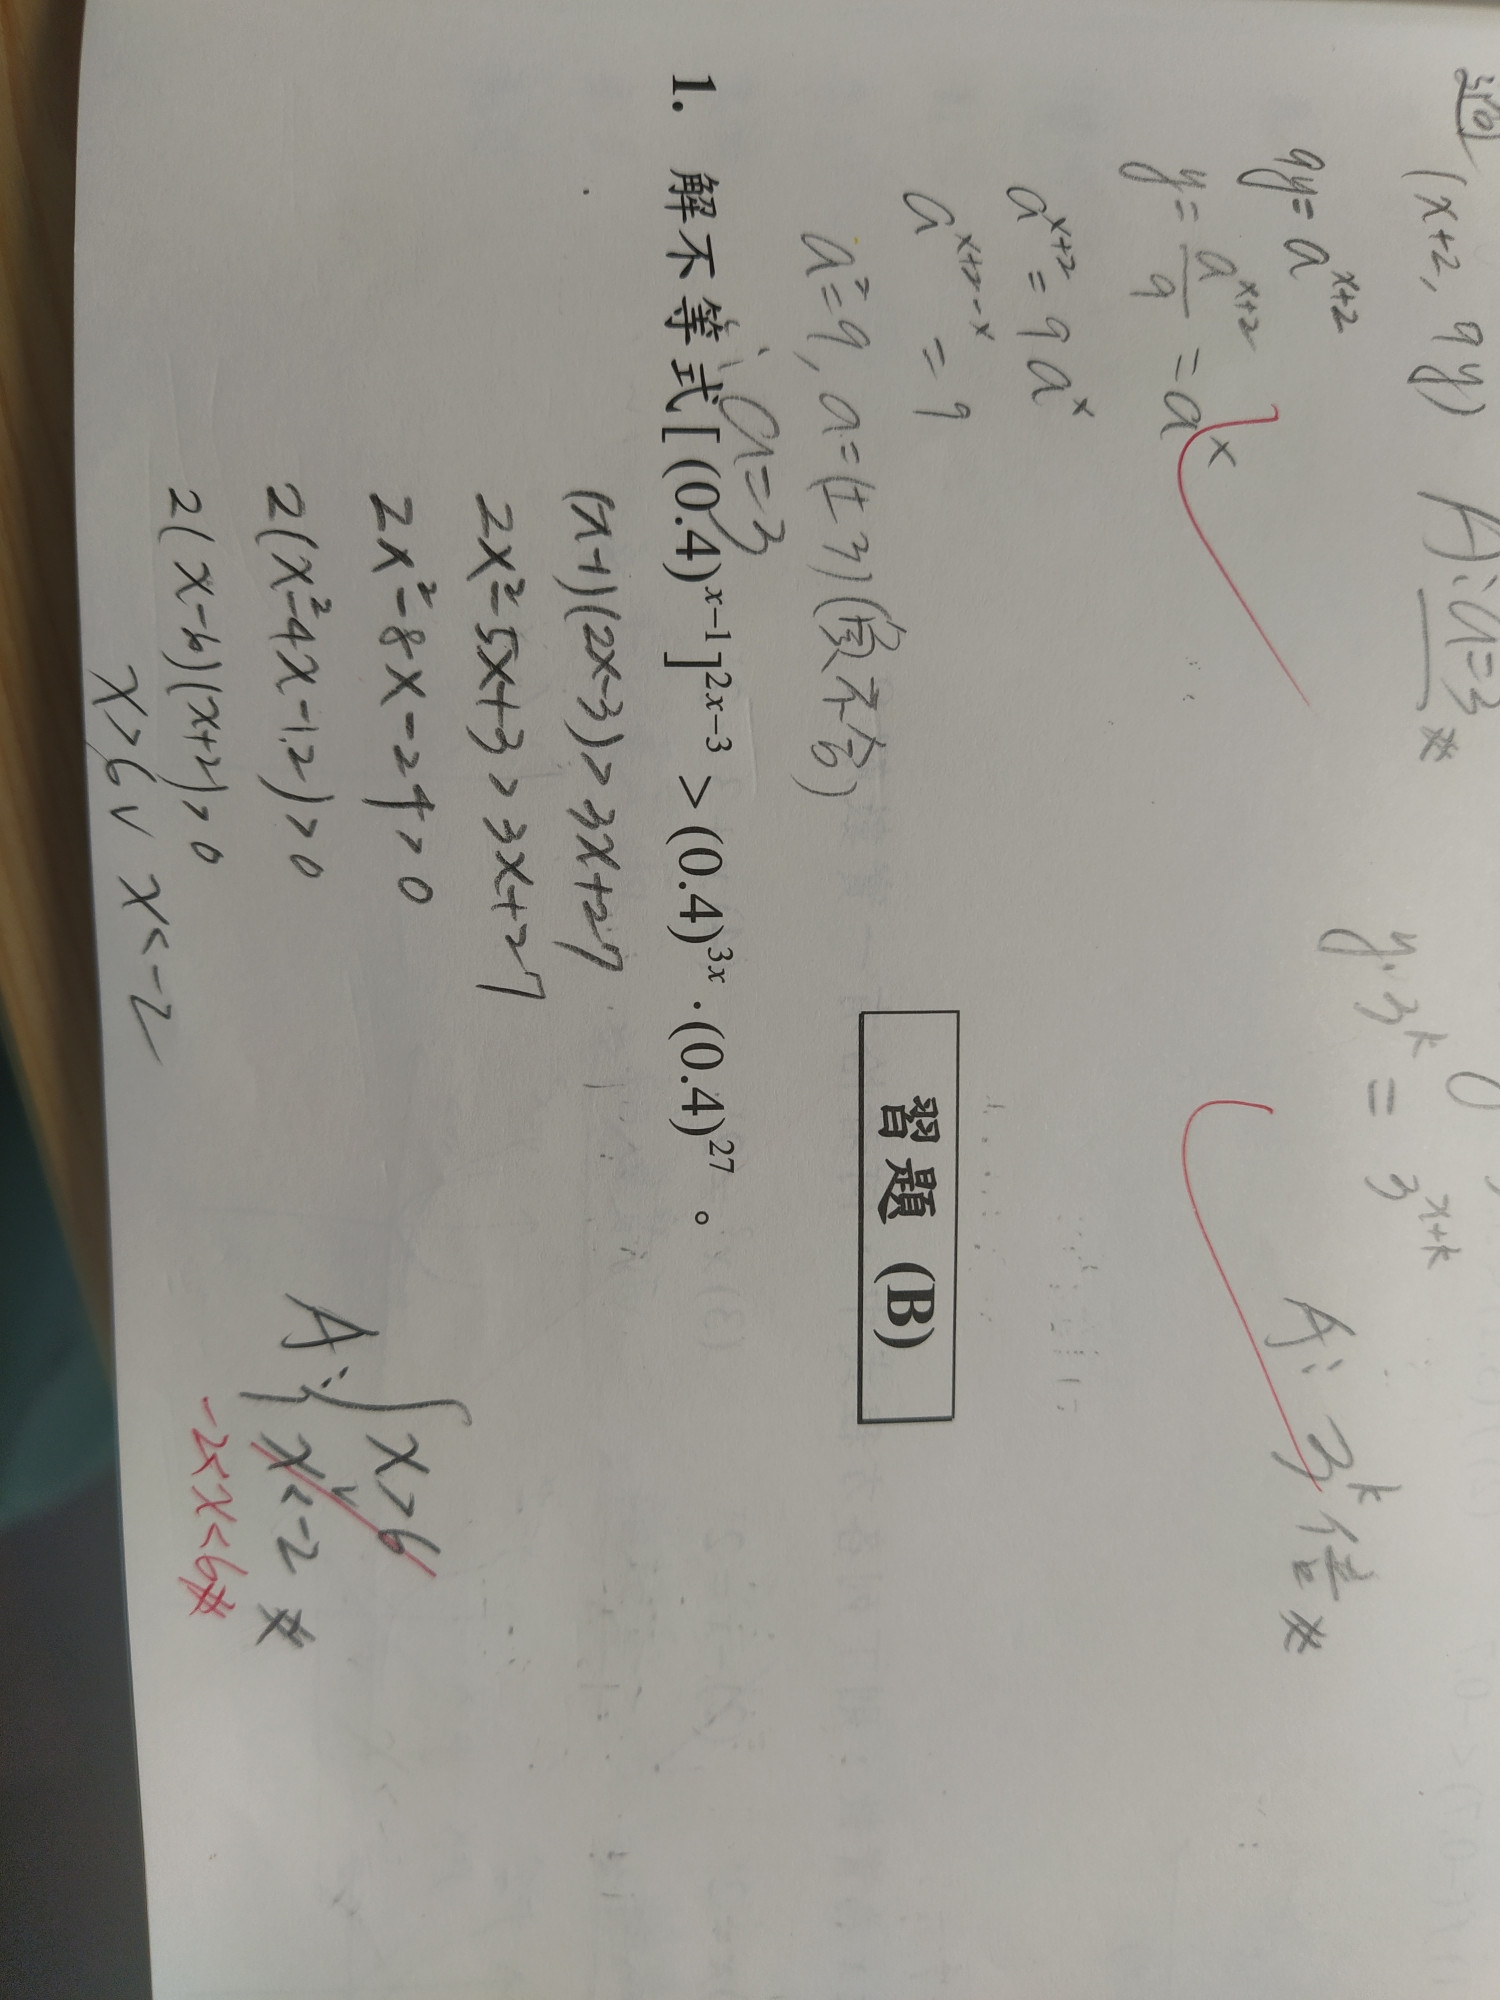 (x+2, 9y) A: a=3 #
9y = a^{x+2}
y = \frac{a^{x+2}}{9} = a^x
a^{x+2} = 9a^x
a^{x+2-x} = 9
a^2=9, a=(±3)(負不合)
a=3
y·3^k = 3^{x+k}
A: 3^k 倍 #
習題 (B)
1. 解不等式[(0.4)^{x−1}]^{2x−3} > (0.4)^{3x}·(0.4)^{27}。
(x-1)(2x-3) > 3x+27
2x^2-5x+3 > 3x+27
2x^2-8x-24 > 0
2(x^2-4x-12) > 0
2(x-6)(x+2) > 0
x>6 ∨ x<-2
A: { x>6
x<-2 #
-2<x<6 #